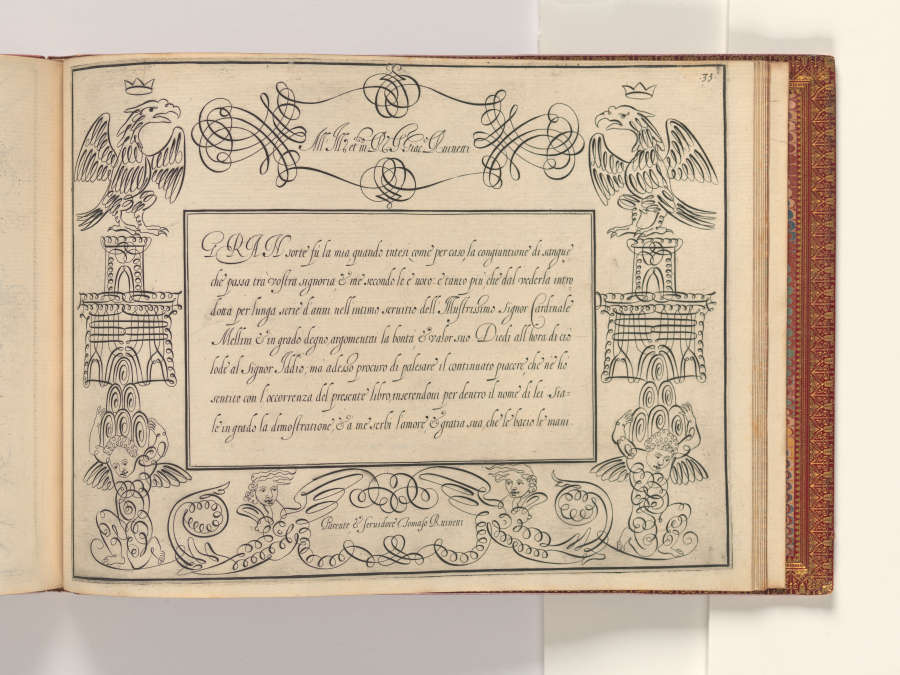 33
All Ill.re et m.to R.do Sig.r Giac.o Ruinetti
GRAN sorte fu la mia quando intesi come per caso la congiuntione di sangue
che passa trà vostra signoria & me secondo le è noto: e tanto più che dal vederla intro
dotta per lunga serie d'anni nell'intimo seruitio dell' Illustrissimo Signor Cardinale
Mellini & in grado degno argomentai la bontà & valor suo Diedi all'hora di ciò
lode al Signor Iddio, ma adesso procuro di palesare il continuato piacere che nè hò
sentito con l'occorrenza del presente libro, inserendoui per dentro il nome di lei Sia-
le in grado la dimostratione, & à me serbi l'amore & gratia sua, che le bacio le mani.
Parente & seruidore Tomaso Ruinetti